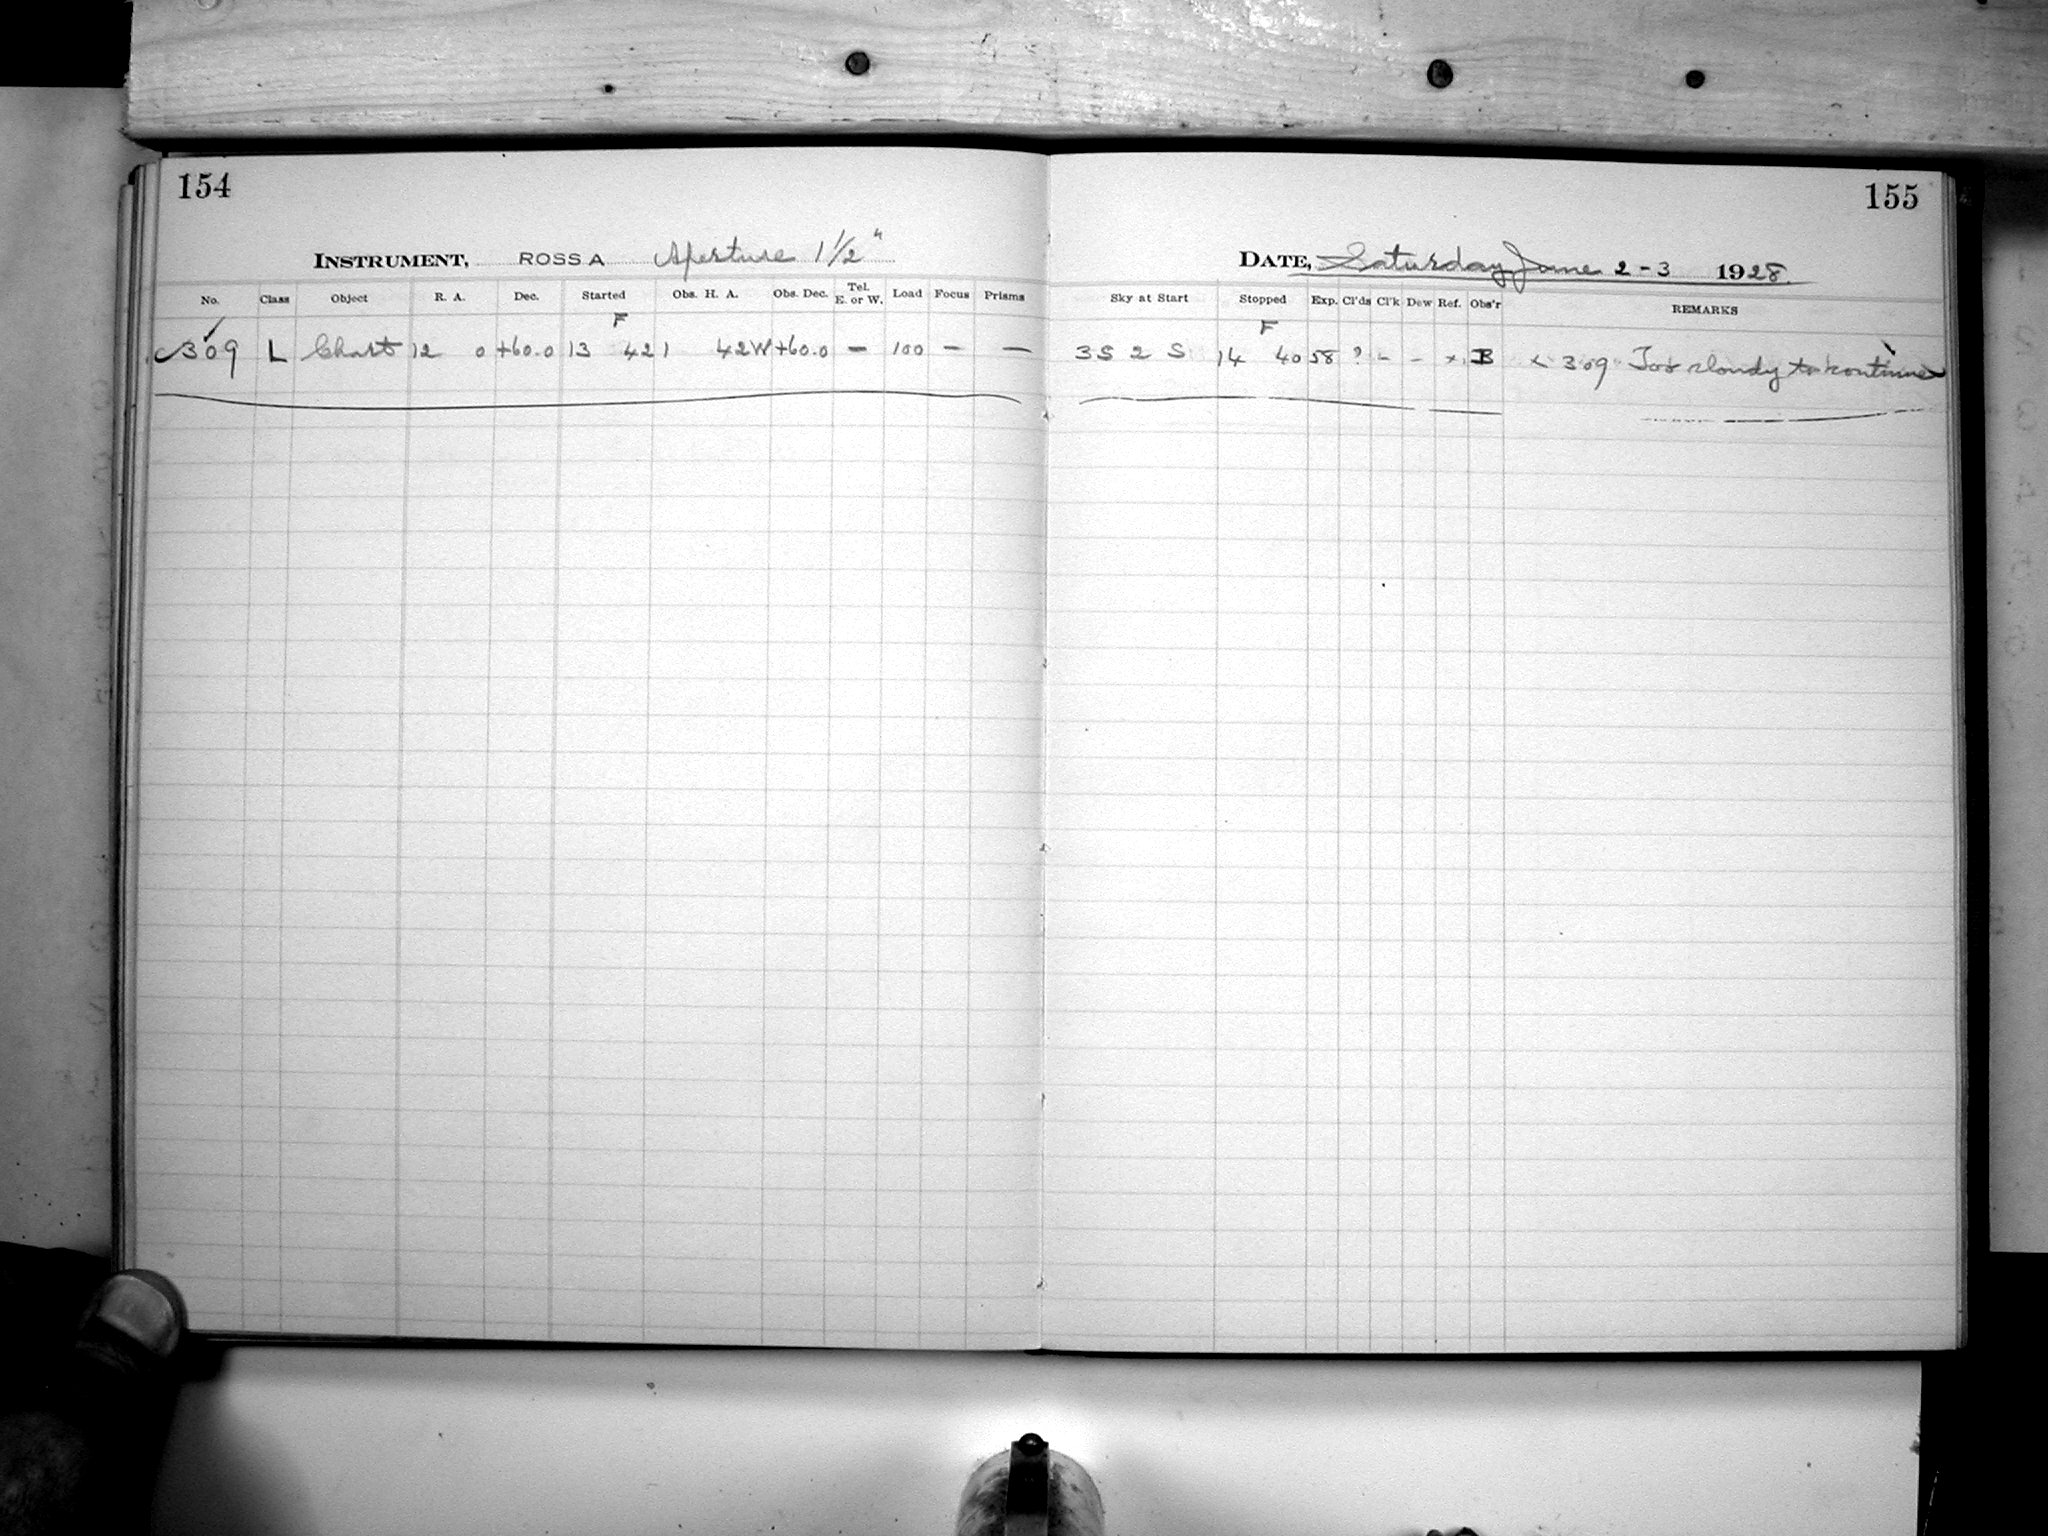 154
INSTRUMENT, ROSS A Aperture 1 1/2"
No. Class Object R. A. Dec. Started Obs. H. A. Obs. Dec. Tel. E. or W. Load Focus Prisms
F
309 L Chart 12 0 +60.0 13 42 1 42W +60.0 – 100 – –
155
DATE, Saturday June 2-3 1928.
Sky at Start Stopped Exp. Cl'ds Cl'k Dew Ref. Obs'r REMARKS
F
3S 2 S 14 40 58 ? - - x. B < 309 Too cloudy to continue